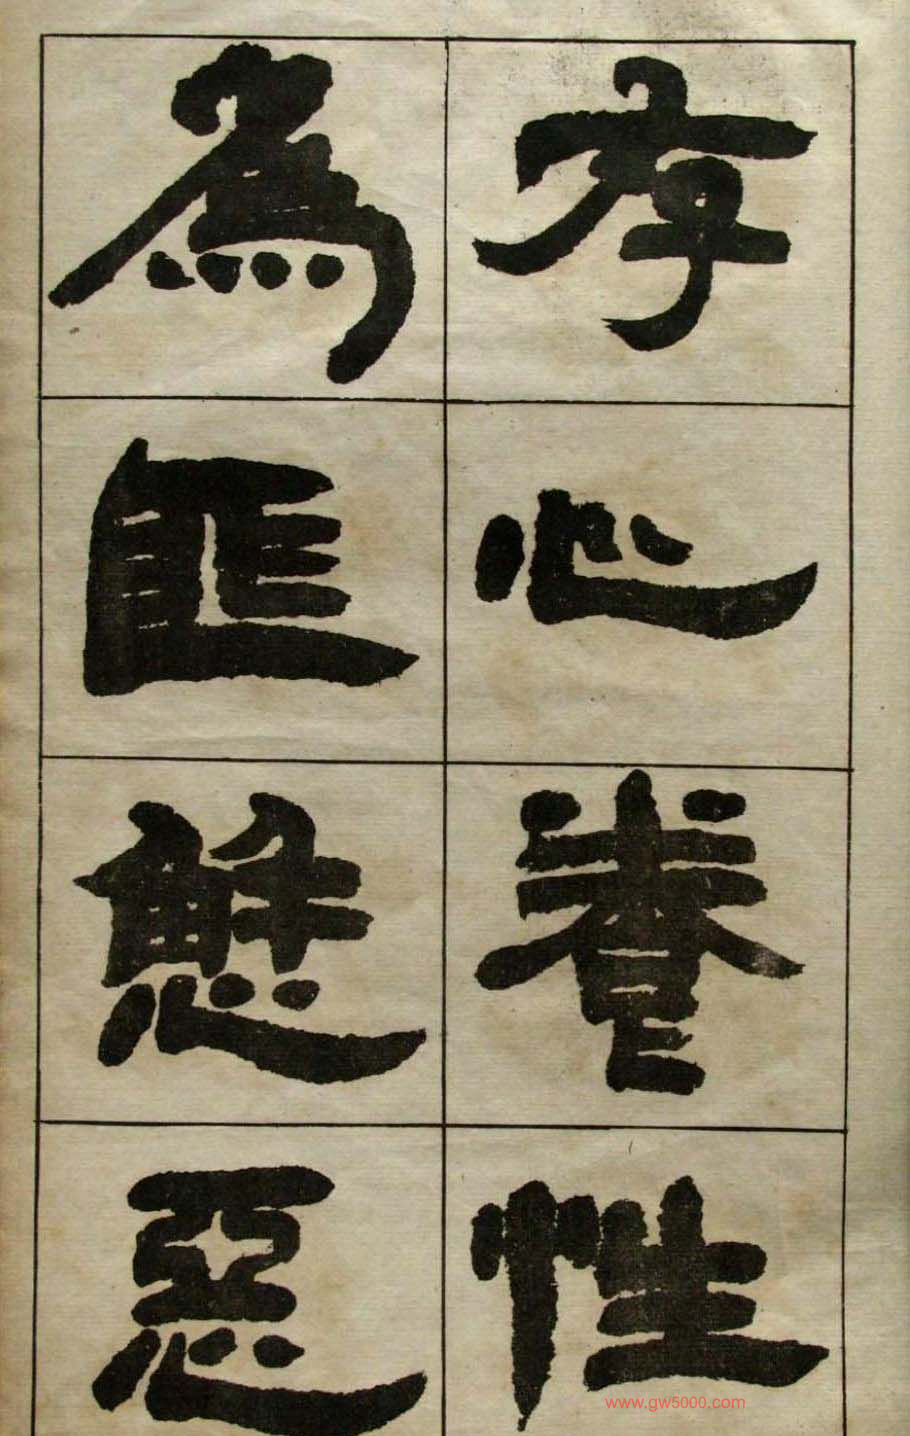 存心養性
為匪懈惡
www.gw5000.com